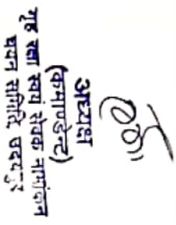 अध्यक्ष
(कमाण्डेन्ट)
गृह रक्षा स्वयं सेवक नामांकन
चयन समिति, उदयपुर